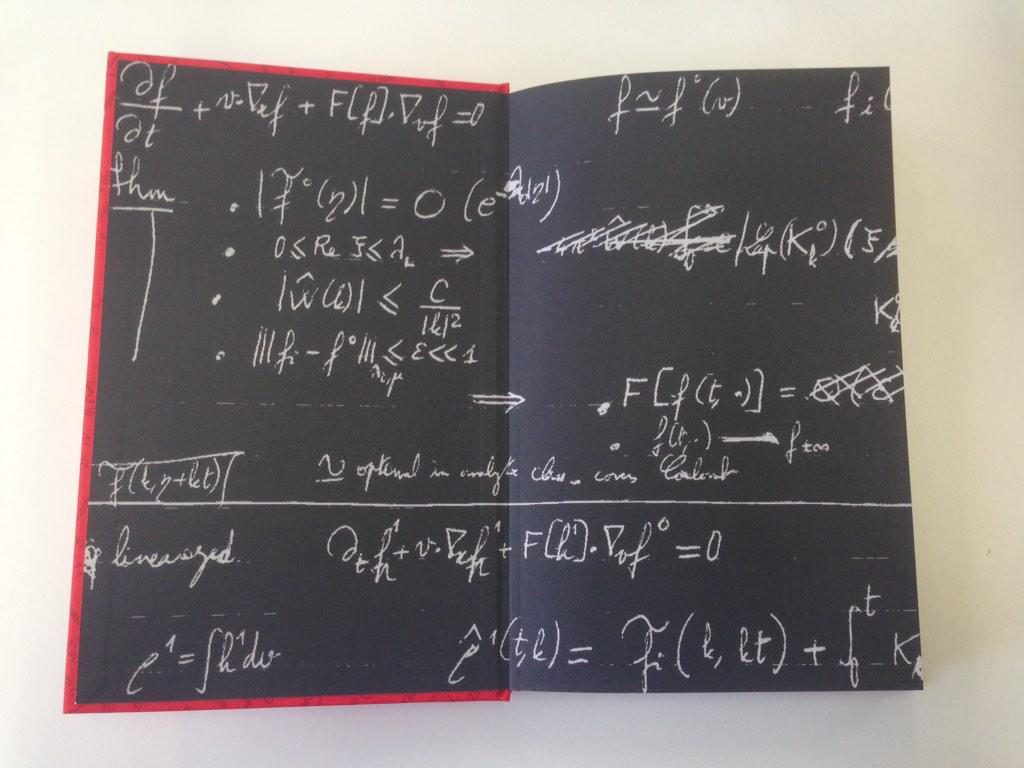 ∂f/∂t + v·∇ₓf + F[f]·∇ᵥf = 0 f ≃ f°(v) fᵢ(
thm
• |f̃°(η)| = O(e^{-λ₀|η|})
• 0 ≤ Re ξ ≤ λ_L ⇒ (K_k^0)(ξ,
• |Ŵ(k)| ≤ C/|k|² K_k^0
• |||fᵢ − f°|||_{λᵢ,μ} ≤ ε << 1
⇒ • F[f(t,·)] =
• f(t,·) → f_{±∞}
f̃(k,η+kt) ≃ optimal in analytic class, covers Coulomb
linearized ∂ₜh¹ + v·∇ₓh¹ + F[h¹]·∇ᵥf° = 0
ρ¹ = ∫h¹dv ρ̂¹(t,k) = f̃ᵢ(k, kt) + ∫₀ᵗ K